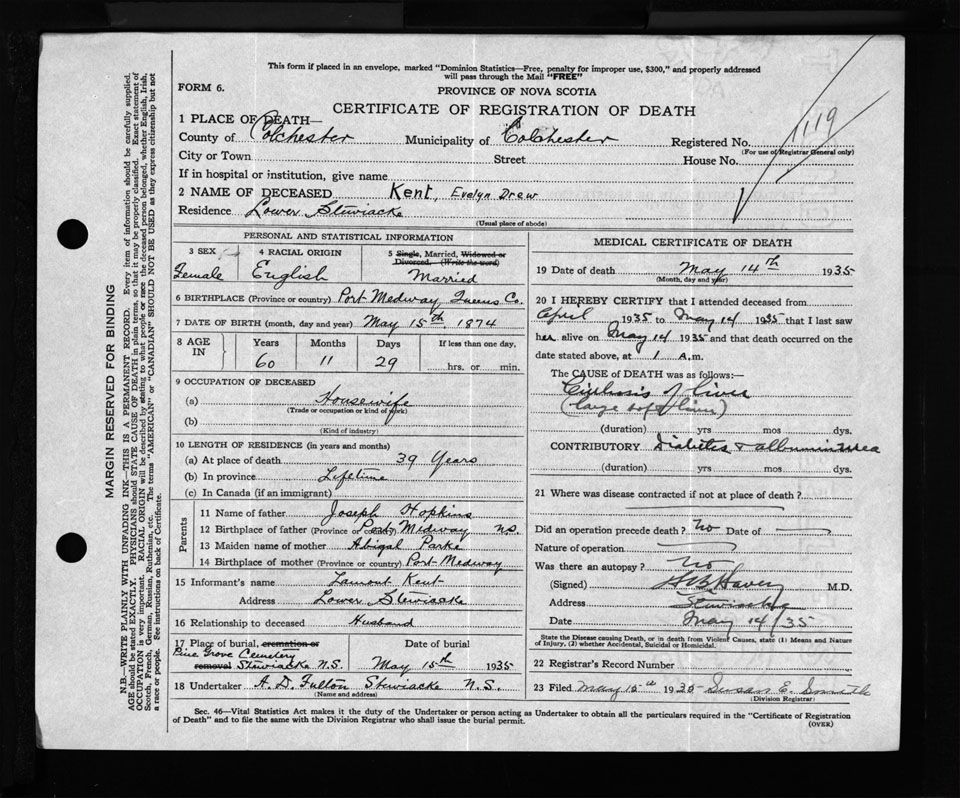 This form if placed in an envelope, marked "Dominion Statistics—Free, penalty for improper use, $300," and properly addressed
will pass through the Mail "FREE"
FORM 6.
PROVINCE OF NOVA SCOTIA
CERTIFICATE OF REGISTRATION OF DEATH
1 PLACE OF DEATH—
County of Colchester Municipality of Colchester Registered No. 1119
(For use of Registrar General only)
City or Town Street House No.
If in hospital or institution, give name
2 NAME OF DECEASED Kent, Evelyn Drew
Residence Lower Stewiacke
(Usual place of abode)
PERSONAL AND STATISTICAL INFORMATION
3 SEX 4 RACIAL ORIGIN 5 Single, Married, Widowed or
Divorced. (Write the word)
Female English Married
6 BIRTHPLACE (Province or country) Port Medway Queens Co.
7 DATE OF BIRTH (month, day and year) May 15th 1874
8 AGE IN Years Months Days If less than one day,
60 11 29 hrs. or min.
9 OCCUPATION OF DECEASED
(a) Housewife
(Trade or occupation or kind of work)
(b)
(Kind of industry)
10 LENGTH OF RESIDENCE (in years and months)
(a) At place of death 39 Years
(b) In province Lifetime
(c) In Canada (if an immigrant)
Parents
11 Name of father Joseph Hopkins
12 Birthplace of father (Province or country) Port Medway N.S.
13 Maiden name of mother Abigal Parke
14 Birthplace of mother (Province or country) Port Medway
15 Informant's name Lamont Kent
Address Lower Stewiacke
16 Relationship to deceased Husband
17 Place of burial, cremation or Date of burial
Pine Grove Cemetery
removal Stewiacke N.S. May 15th 1935
18 Undertaker A. D. Fulton Stewiacke N.S.
(Name and address)
MEDICAL CERTIFICATE OF DEATH
19 Date of death May 14th 1935
(Month, day and year)
20 I HEREBY CERTIFY that I attended deceased from
April 1935 to May 14 1935 that I last saw
her alive on May 14 1935 and that death occurred on the
date stated above, at 1 A.m.
The CAUSE of DEATH was as follows:—
Cirrhosis of liver
(large soft liver)
(duration) yrs mos dys.
CONTRIBUTORY Diabetes & albuminurea
(duration) yrs mos dys.
21 Where was disease contracted if not at place of death?
Did an operation precede death? No Date of
Nature of operation
Was there an autopsy? No
(Signed) M.D.
Address Stewiacke
Date May 14/35
State the Disease causing Death, or in death from Violent Causes, state (1) Means and Nature
of Injury, (2) whether Accidental, Suicidal or Homicidal.
22 Registrar's Record Number
23 Filed May 15th 1935 Susan E. Smith
(Division Registrar)
Sec. 46—Vital Statistics Act makes it the duty of the Undertaker or person acting as Undertaker to obtain all the particulars required in the "Certificate of Registration
of Death" and to file the same with the Division Registrar who shall issue the burial permit.
(OVER)
MARGIN RESERVED FOR BINDING
N.B.—WRITE PLAINLY WITH UNFADING INK—THIS IS A PERMANENT RECORD. Every item of information should be carefully supplied.
AGE should be stated EXACTLY. PHYSICIANS should STATE CAUSE OF DEATH in plain terms, so that it may be properly classified. Exact statement of
OCCUPATION is very important. RACIAL ORIGIN will be described by stating to what people or race the deceased person belonged, whether English, Irish,
Scotch, French, German, Russian, Ruthenian, etc. The terms "AMERICAN" or "CANADIAN" SHOULD NOT BE USED as they express citizenship but not
a race or people. See instructions on back of Certificate.